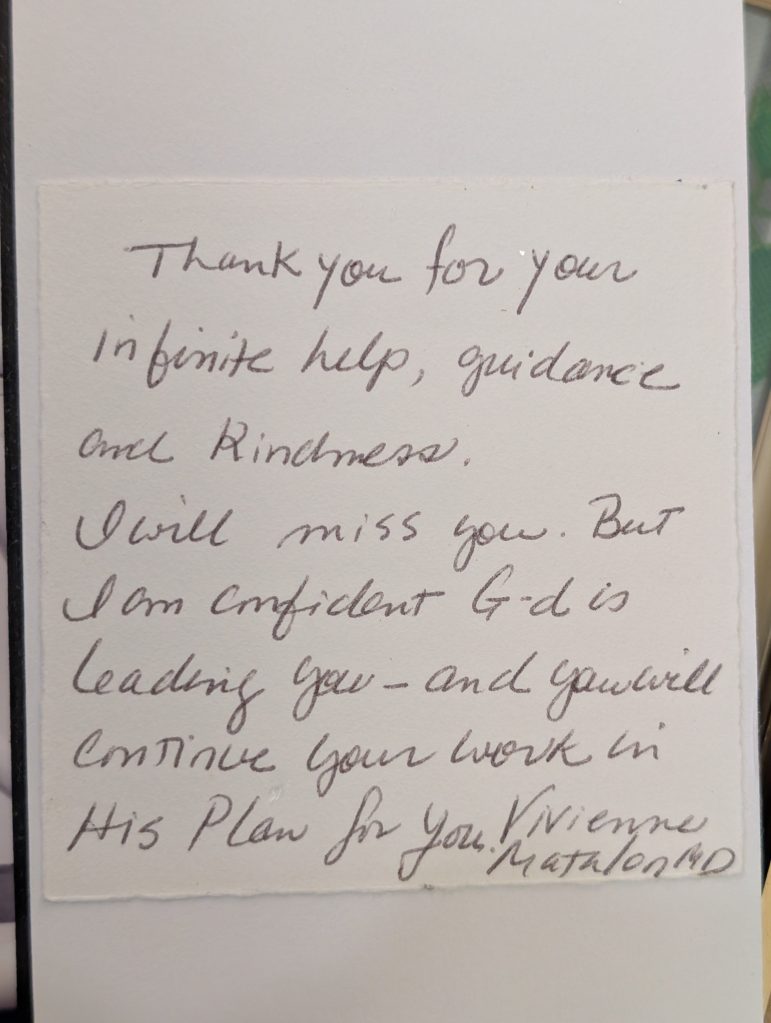 Thank you for your
infinite help, guidance
and kindness.
I will miss you. But
I am confident G-d is
leading you - and you will
continue your work in
His Plan for you. Vivienne
Matalon MD